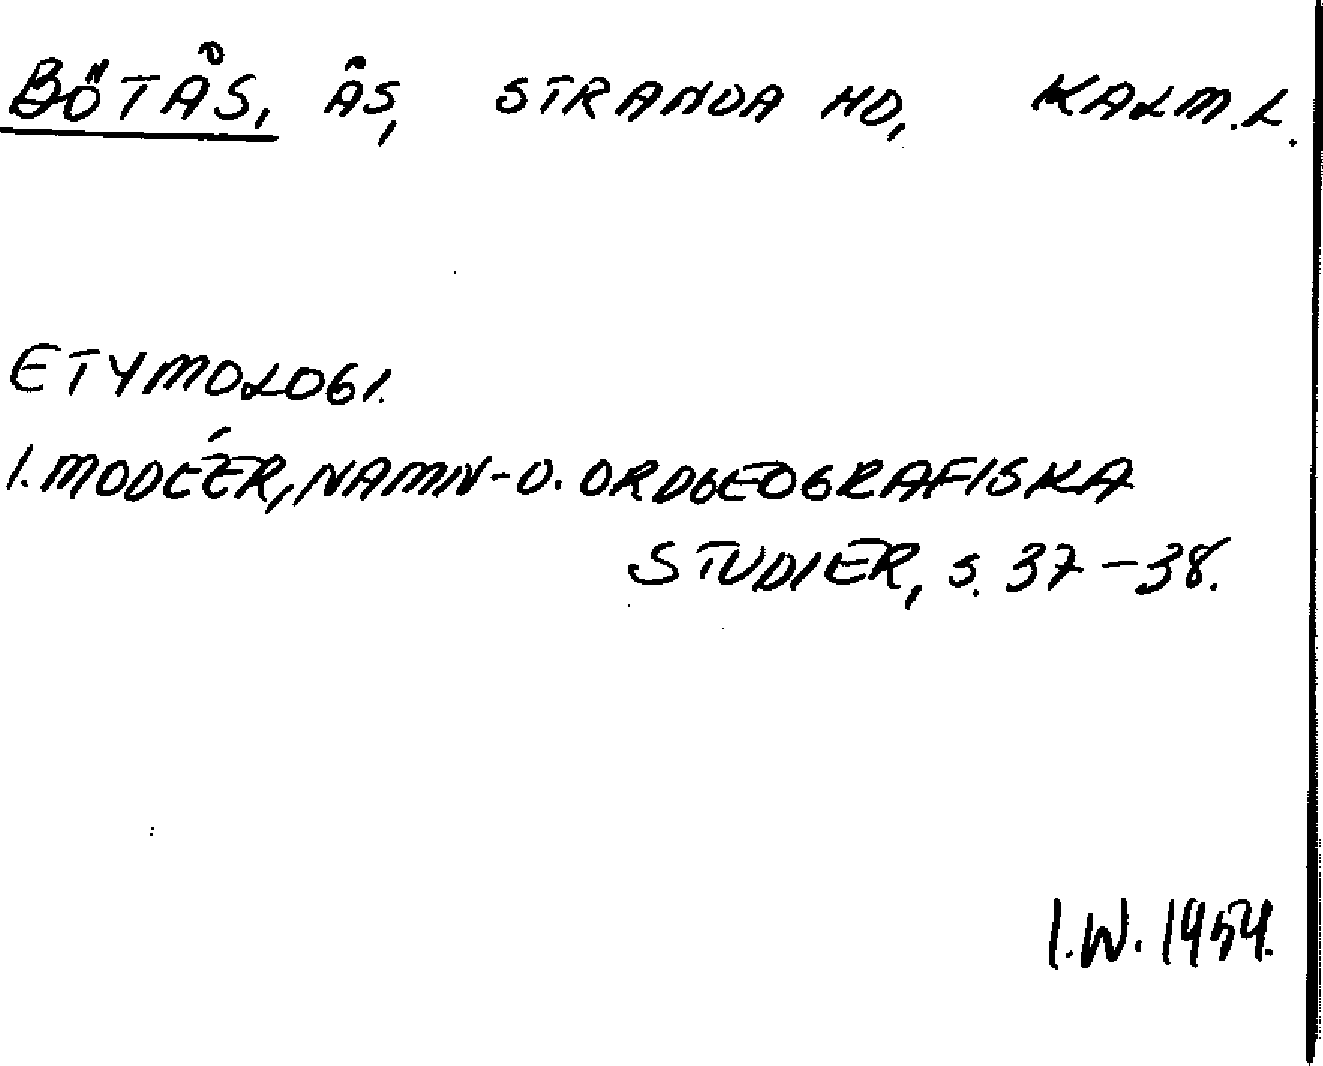 BÖTÅS, ÅS, STRANDA HD, KALM.L.
ETYMOLOGI.
I. MODÉER, NAMN- O. ORDGEOGRAFISKA
STUDIER, S. 37-38.
I.W. 1954.